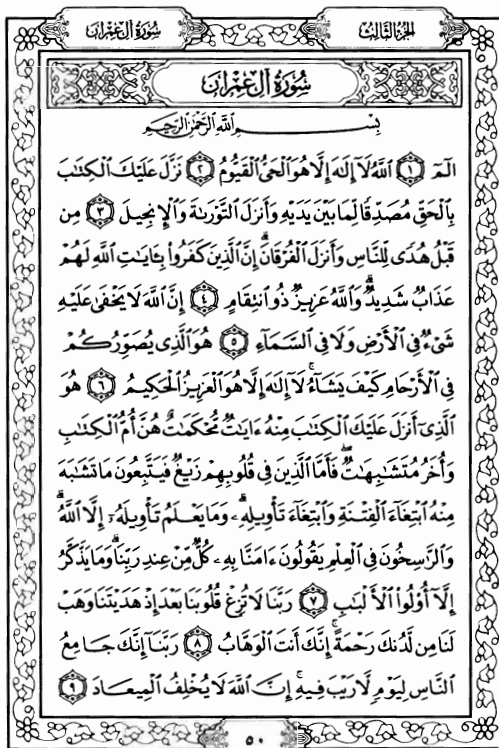 الجزء الثالث
سورة آل عمران
سُورَةُ آلِ عِمْرَانَ
بِسْمِ ٱللَّهِ ٱلرَّحْمَٰنِ ٱلرَّحِيمِ
الٓمٓ ١ ٱللَّهُ لَآ إِلَٰهَ إِلَّا هُوَ ٱلْحَىُّ ٱلْقَيُّومُ ٢ نَزَّلَ عَلَيْكَ ٱلْكِتَٰبَ
بِٱلْحَقِّ مُصَدِّقًا لِّمَا بَيْنَ يَدَيْهِ وَأَنزَلَ ٱلتَّوْرَىٰةَ وَٱلْإِنجِيلَ ٣ مِن
قَبْلُ هُدًى لِّلنَّاسِ وَأَنزَلَ ٱلْفُرْقَانَۗ إِنَّ ٱلَّذِينَ كَفَرُوا۟ بِـَٔايَٰتِ ٱللَّهِ لَهُمْ
عَذَابٌ شَدِيدٌۗ وَٱللَّهُ عَزِيزٌ ذُو ٱنتِقَامٍ ٤ إِنَّ ٱللَّهَ لَا يَخْفَىٰ عَلَيْهِ
شَىْءٌ فِى ٱلْأَرْضِ وَلَا فِى ٱلسَّمَآءِ ٥ هُوَ ٱلَّذِى يُصَوِّرُكُمْ
فِى ٱلْأَرْحَامِ كَيْفَ يَشَآءُۚ لَآ إِلَٰهَ إِلَّا هُوَ ٱلْعَزِيزُ ٱلْحَكِيمُ ٦ هُوَ
ٱلَّذِىٓ أَنزَلَ عَلَيْكَ ٱلْكِتَٰبَ مِنْهُ ءَايَٰتٌ مُّحْكَمَٰتٌ هُنَّ أُمُّ ٱلْكِتَٰبِ
وَأُخَرُ مُتَشَٰبِهَٰتٌۖ فَأَمَّا ٱلَّذِينَ فِى قُلُوبِهِمْ زَيْغٌ فَيَتَّبِعُونَ مَا تَشَٰبَهَ
مِنْهُ ٱبْتِغَآءَ ٱلْفِتْنَةِ وَٱبْتِغَآءَ تَأْوِيلِهِۦۗ وَمَا يَعْلَمُ تَأْوِيلَهُۥٓ إِلَّا ٱللَّهُۗ
وَٱلرَّٰسِخُونَ فِى ٱلْعِلْمِ يَقُولُونَ ءَامَنَّا بِهِۦ كُلٌّ مِّنْ عِندِ رَبِّنَاۗ وَمَا يَذَّكَّرُ
إِلَّآ أُو۟لُوا۟ ٱلْأَلْبَٰبِ ٧ رَبَّنَا لَا تُزِغْ قُلُوبَنَا بَعْدَ إِذْ هَدَيْتَنَا وَهَبْ
لَنَا مِن لَّدُنكَ رَحْمَةًۚ إِنَّكَ أَنتَ ٱلْوَهَّابُ ٨ رَبَّنَآ إِنَّكَ جَامِعُ
ٱلنَّاسِ لِيَوْمٍ لَّا رَيْبَ فِيهِۚ إِنَّ ٱللَّهَ لَا يُخْلِفُ ٱلْمِيعَادَ ٩
٥٠